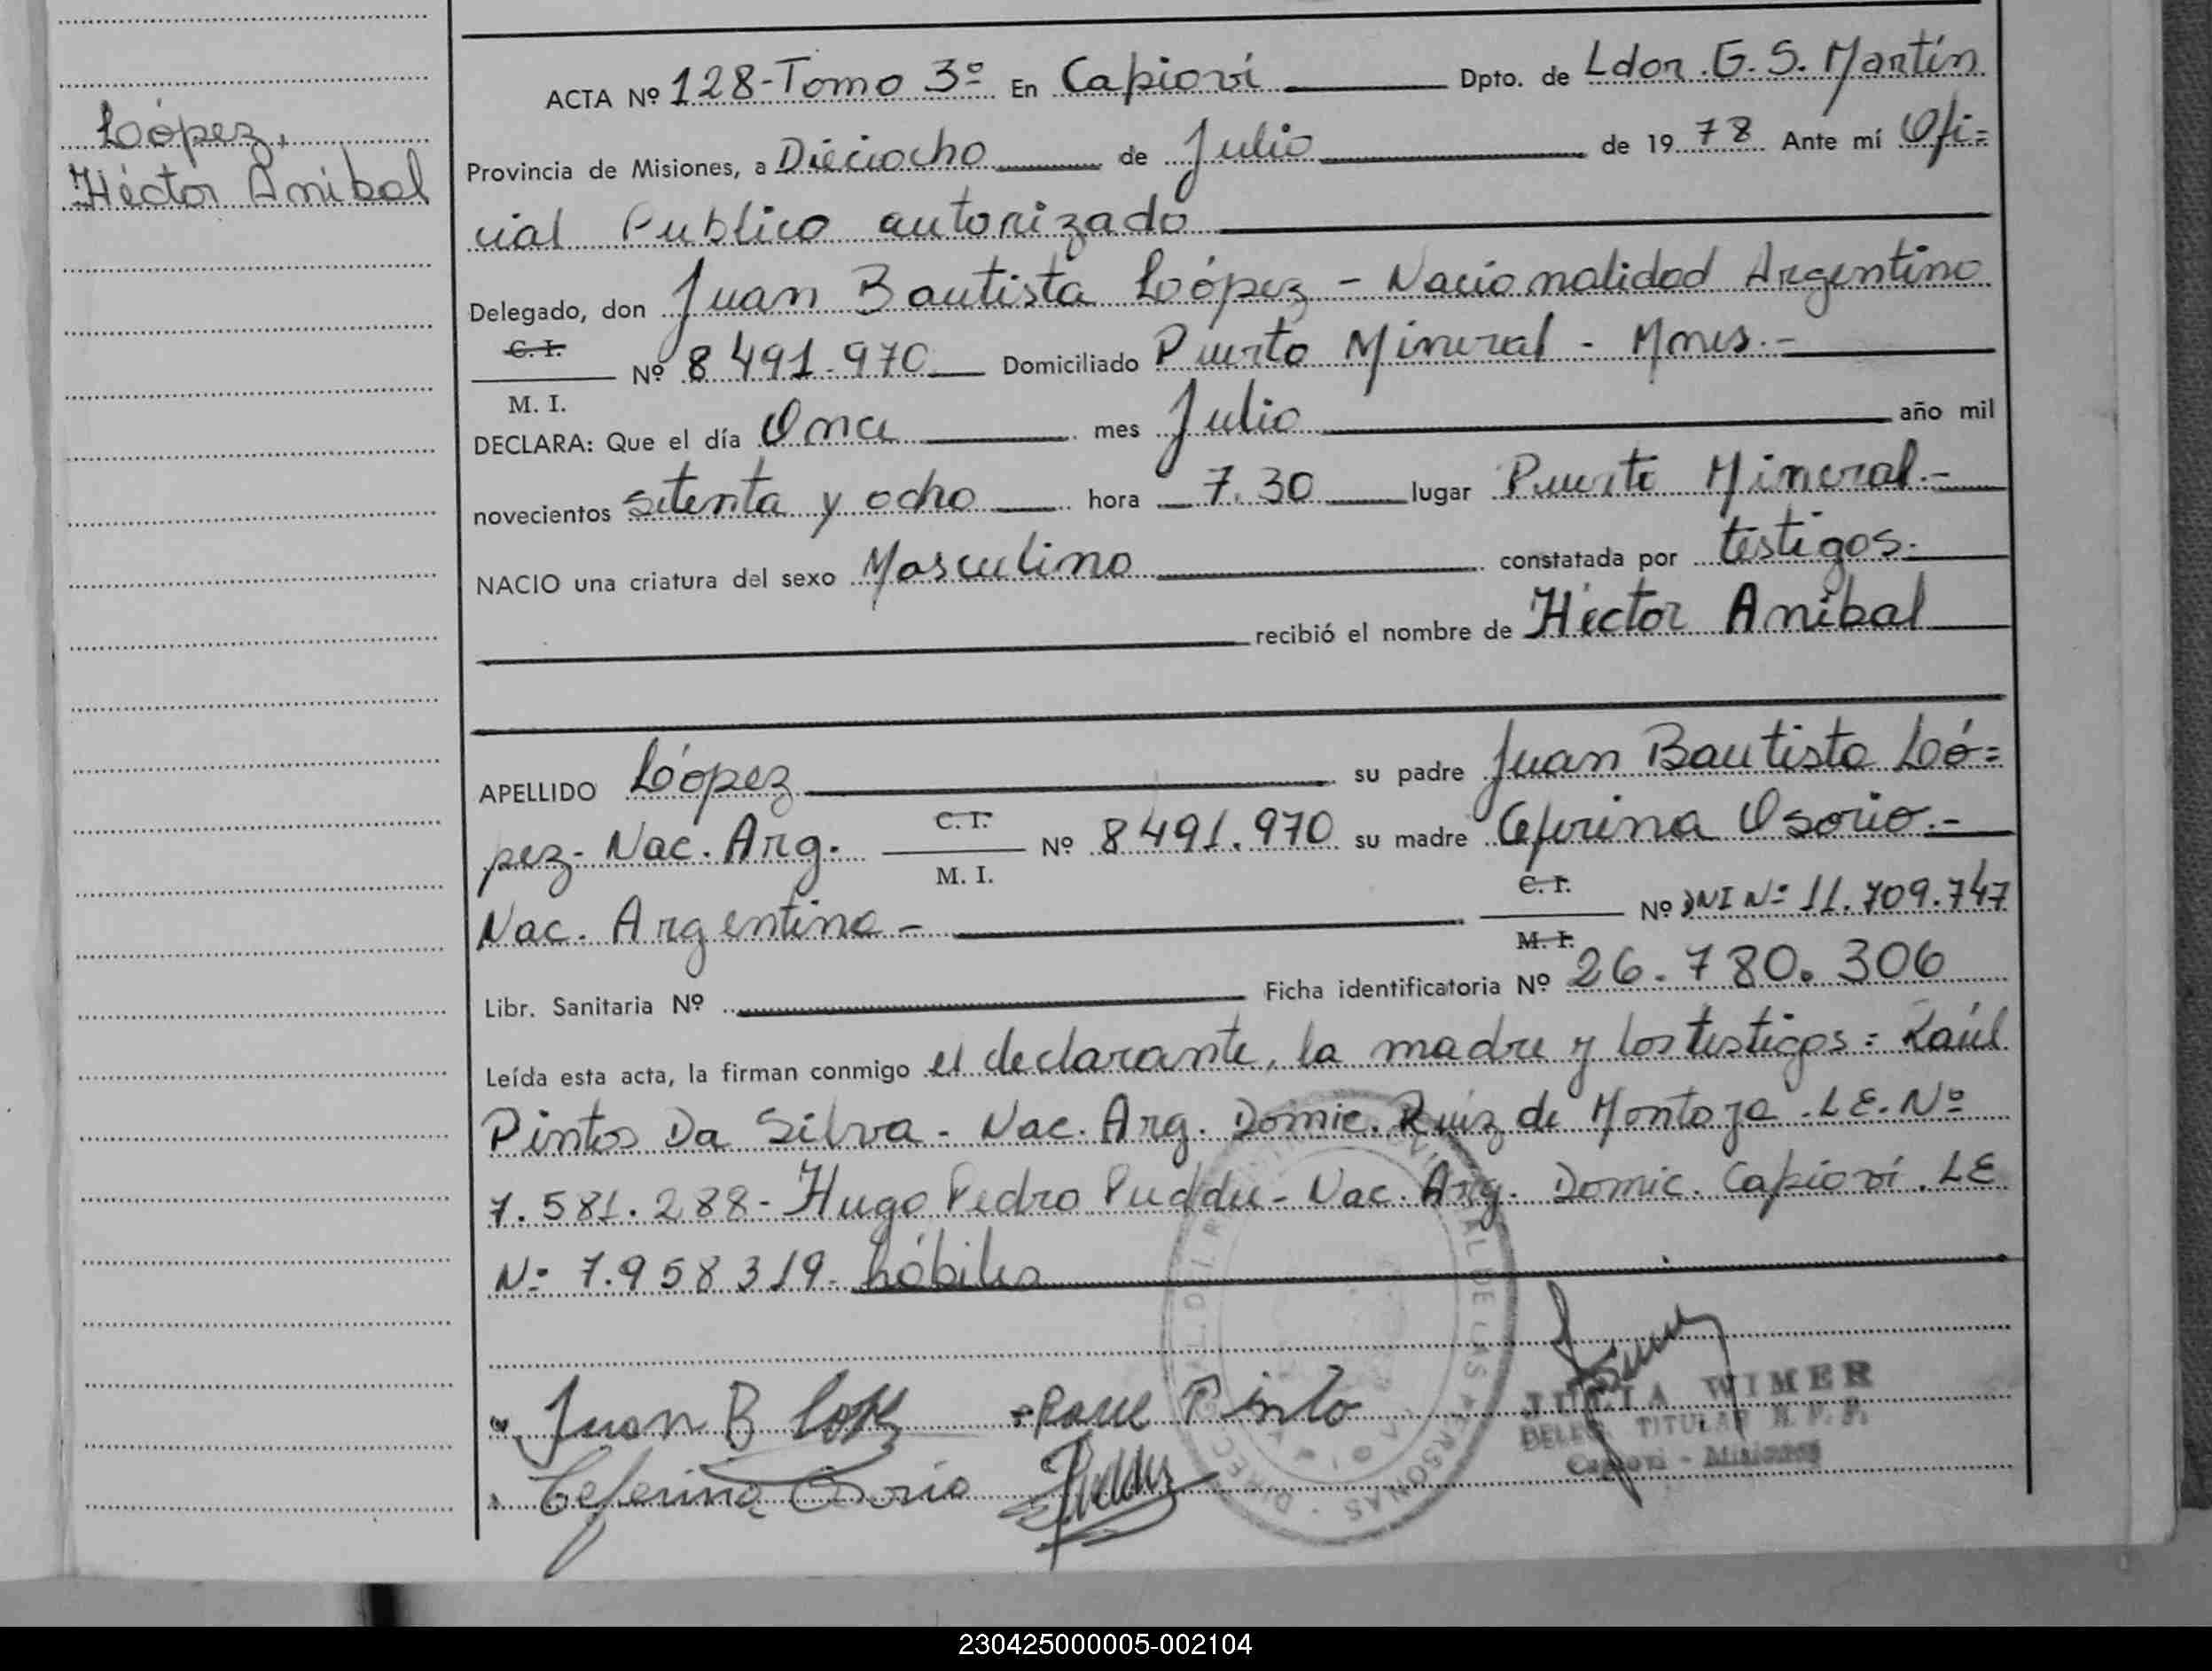 López,
Héctor Anibal
ACTA Nº 128-Tomo 3º En Capioví Dpto. de Ldor. G. S. Martín
Provincia de Misiones, a Dieciocho de Julio de 1978 Ante mí Ofi=
cial Publico autorizado
Delegado, don Juan Bautista López - Nacionalidad Argentino
C. I.
Nº 8491.970 Domiciliado Puerto Mineral - Mnes.-
M. I.
DECLARA: Que el día Once mes Julio año mil
novecientos setenta y ocho hora 7.30 lugar Puerto Mineral.-
NACIO una criatura del sexo Masculino constatada por testigos.
recibió el nombre de Héctor Anibal
APELLIDO López su padre Juan Bautista Ló=
pez- Nac. Arg. C. I. Nº 8491.970 su madre Ceferina Osorio.-
M. I.
C. I.
Nac. Argentina - Nº DNI Nº 11.709.747
M. I.
Libr. Sanitaria Nº Ficha identificatoria Nº 26.780.306
Leída esta acta, la firman conmigo el declarante, la madre y los testigos: Raúl
Pintos Da Silva - Nac. Arg. Domic. Ruiz de Montoya - LE. Nº
7.581.288- Hugo Pedro Puddu- Nac. Arg. Domic. Capioví. LE
Nº 7.958319- hábiles
Juan B Lopez Raul Pinto
JULIA WIMER
DELEG. TITULAR R. P. P.
Capiovi - Misiones
Ceferina Osorio Puddu
230425000005-002104